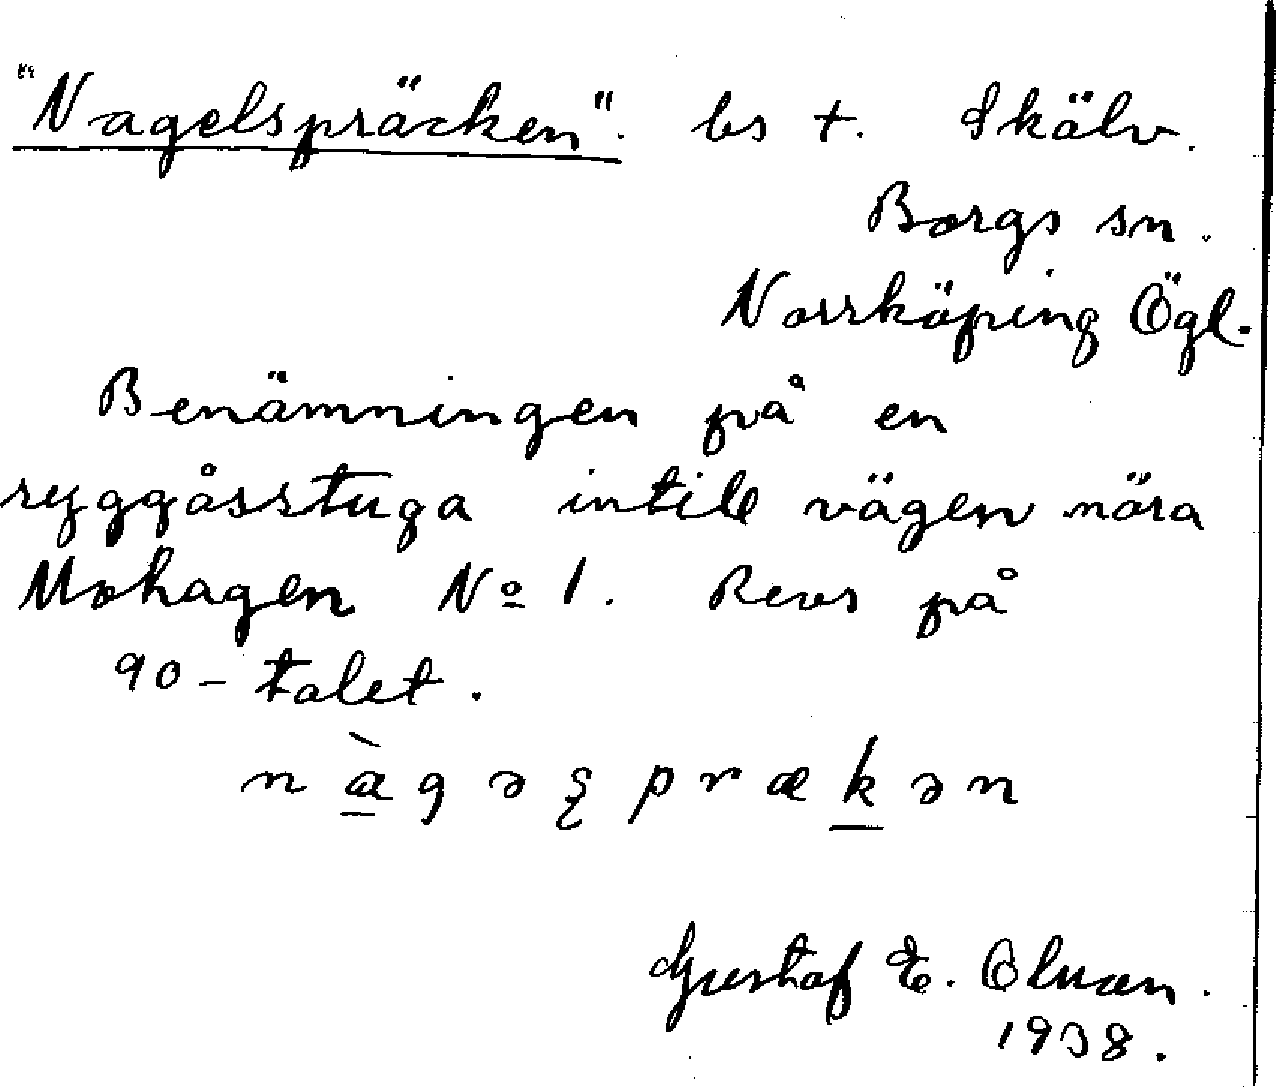 "Nagelspräcken". bs t. Skälv.
Borgs sn.
Norrköping Ögl.
Benämningen på en
ryggåsstuga intill vägen nära
Mohagen No 1. Revs på
90-talet.
nàgəʂprækən
Gustaf E. Olsson.
1938.